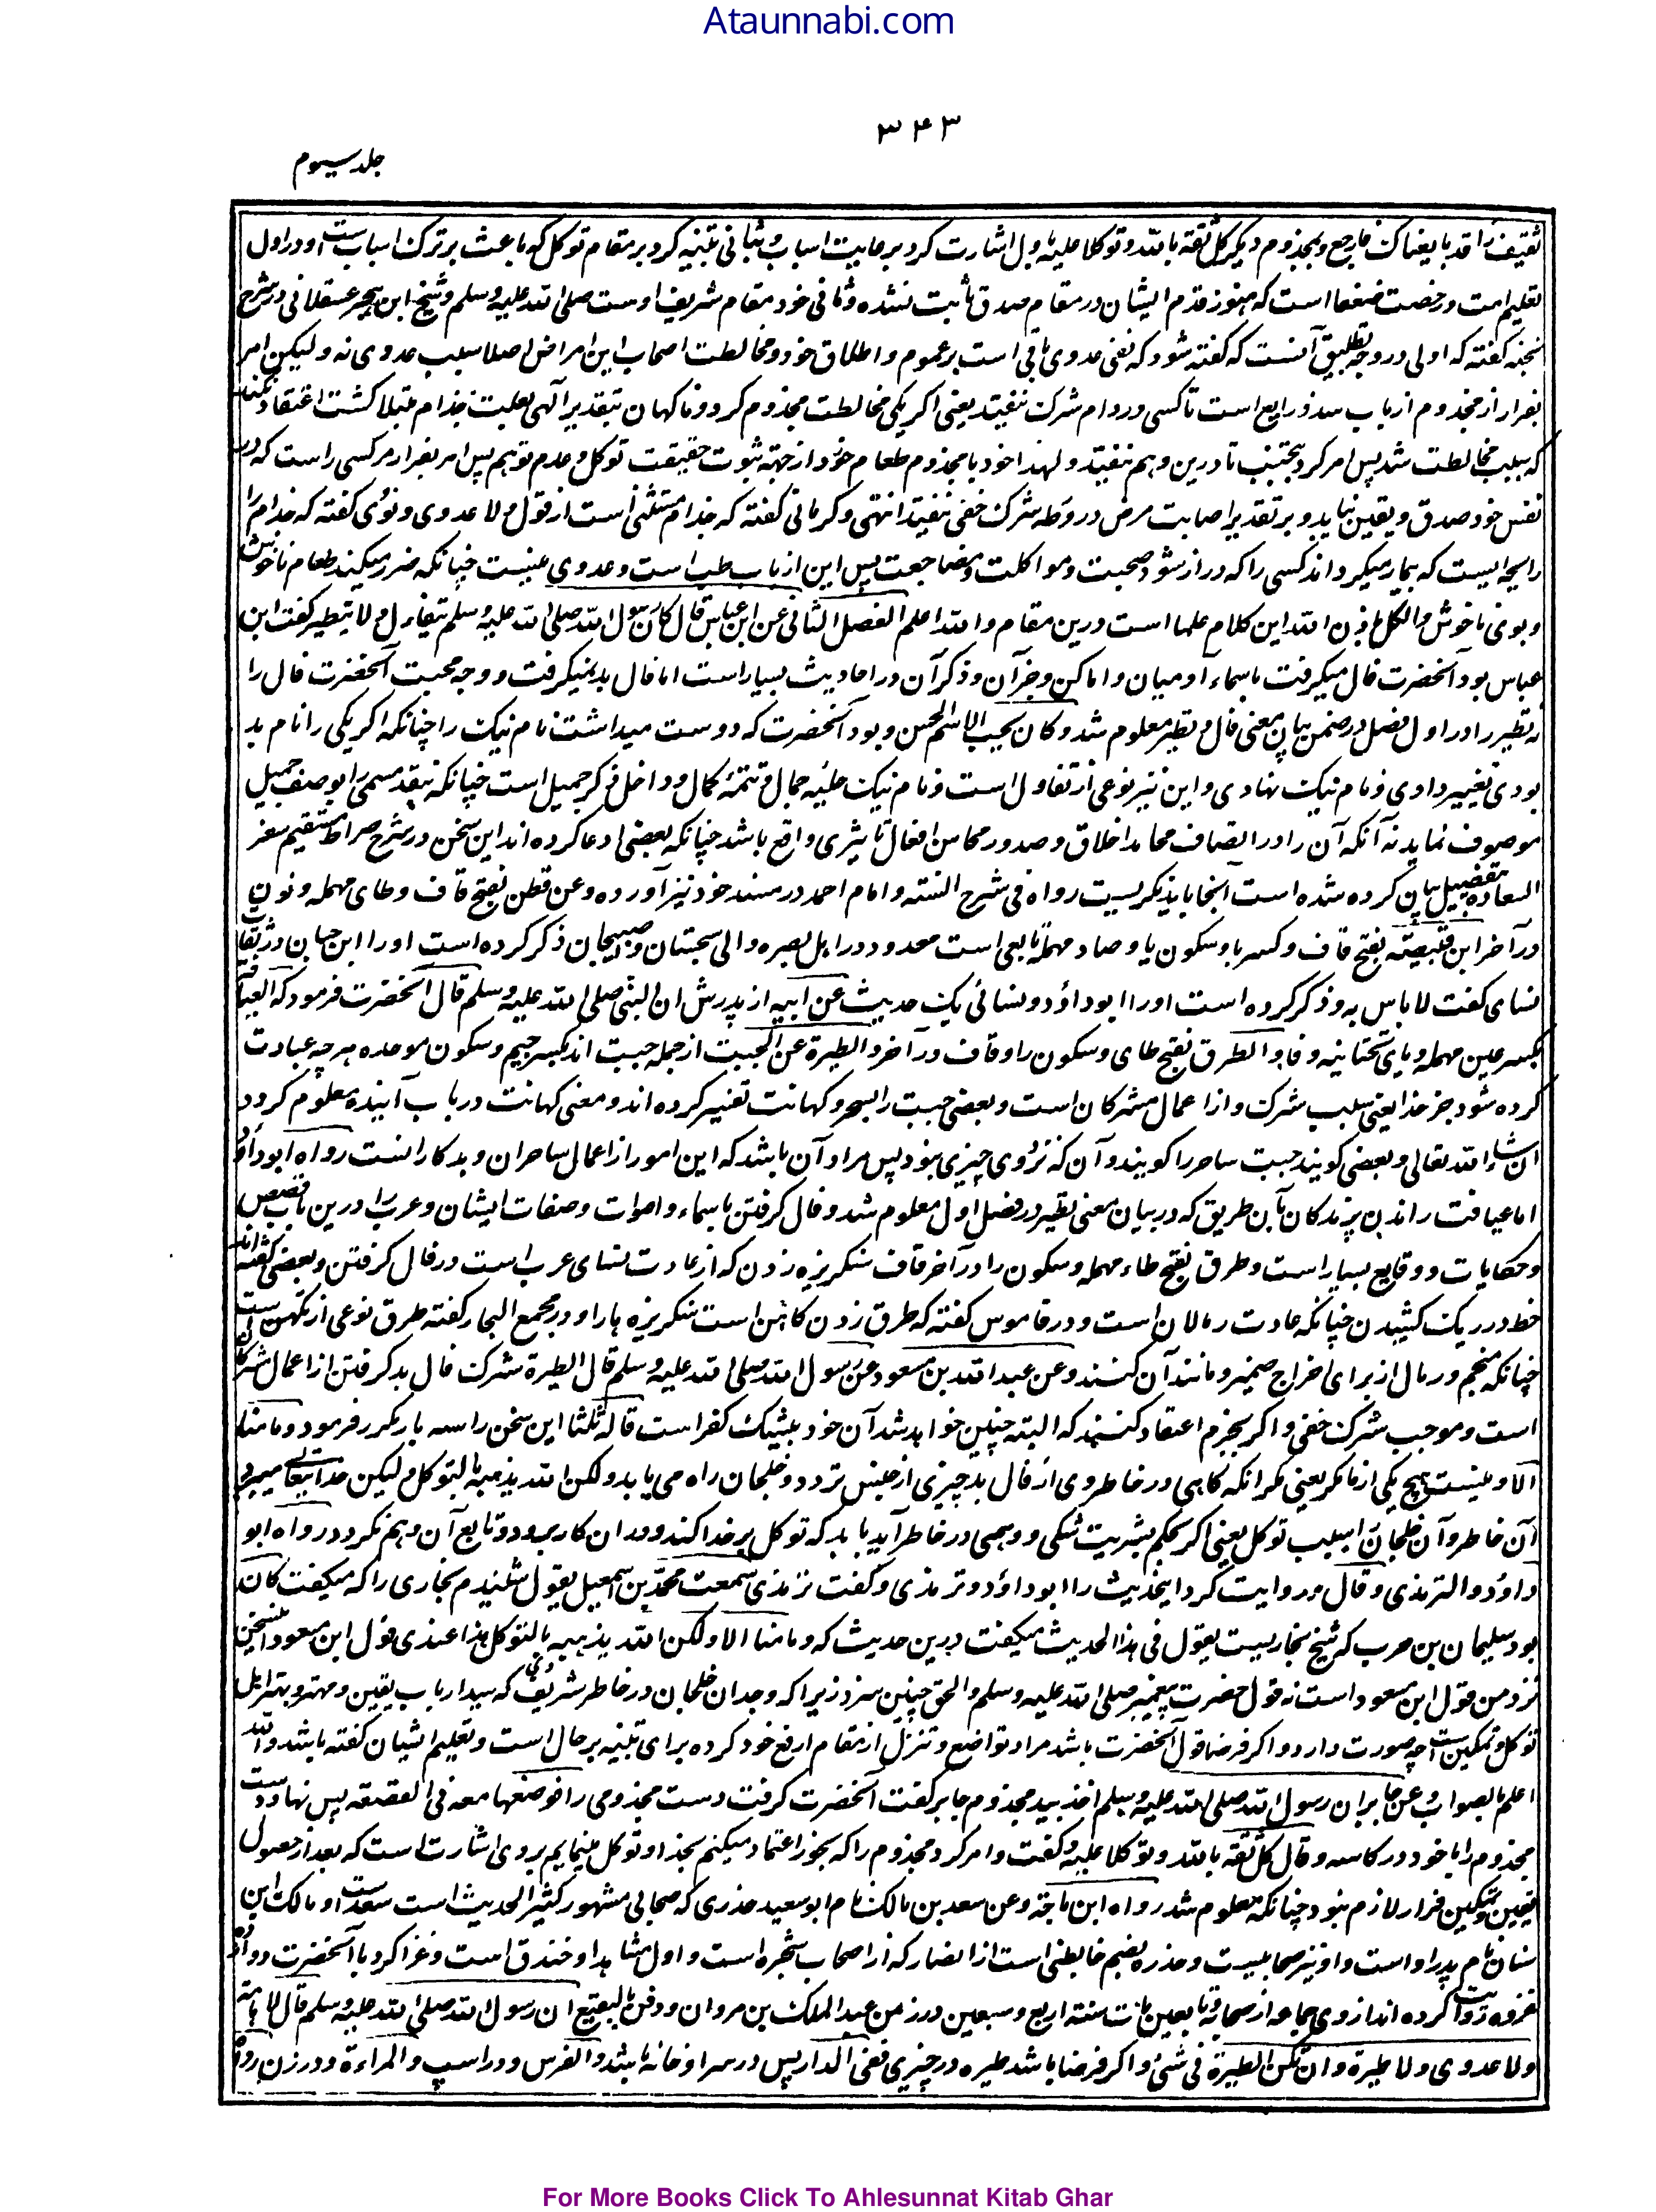 Ataunnabi.com
۳۴۳
جلد سیوم
ثقیف را قد بایعناک فارجع و بمجذوم دیگر کل ثقة بالله و توکلا علیه باول اشارت کرد برعایت اسباب و بثانی تنبیه کرد بر مقام توکل که باعث بر ترک اسباب ست او در اول
تعلیم امت و رخصت ضعفا است که هنوز قدم ایشان در مقام صدق ثابت نشده و ثانی خود مقام شریف اوست صلی الله علیه وسلم و شیخ ابن حجر عسقلانی در شرح
نخبه گفته که اولی در وجه تطبیق آنست که گفته شود که نفی عدوی باقی است بر عموم و اطلاق خود و مخالطت اصحاب این امراض اصلا سبب عدوی نه ولیکن امر
بفرار از مجذوم از باب سد ذرایع است تا کسی در دام شرک نیفتد یعنی اگر یکی مخالطت مجذوم کرد و ناگهان بتقدیر الهی بعلت جذام مبتلا گشت اعتقاد نکند
که بسبب مخالطت شد پس امر کرد بتجنب تا درین وهم نیفتد و لهذا خود با مجذوم طعام خورد از جهة ثبوت حقیقت توکل و عدم توهم پس امر بفرار مر کسی راست که در
نفس خود صدق و یقین نیابد و بر تقدیر اصابت مرض در ورطه شرک خفی نیفتد انتهی و کرمانی گفته که جذام مستثنی است از قول لا عدوی و نووی گفته که جذام را
رایحه ایست که بیمار میگرداند کسی را که دراز شود صحبت و مواکلت و مضاجعت پس این از باب طب است و عدوی نیست چنانکه ضرر میکند طعام ناخوش
و بوی ناخوش والکل باذن الله این کلام علما است درین مقام والله اعلم الفصل الثانی عن ابن عباس قال کان رسول الله صلی الله علیه وسلم یتفاءل ولا یتطیر گفت ابن
عباس بود آنحضرت فال میگرفت باسماء آدمیان و اماکن و جز آن و ذکر آن در احادیث بسیار است اما فال بد نمیگرفت و وجه محبت آنحضرت فال را
نه تطیر را در اول فصل در ضمن بیان معنی فال و تطیر معلوم شد و کان یحب الاسم الحسن و بود آنحضرت که دوست میداشت نام نیک را چنانکه اگر یکی را نام بد
بودی تغییر دادی و نام نیک نهادی و این نیز نوعی از تفاول است و نام نیک حلیه جمال و تتمه کمال و داخل ذکر جمیل است چنانکه نیفتد مسمی را بوصف جمیل
موصوف نماید نه آنکه آن را در اتصاف محامد اخلاق و صدور محاسن افعال تاثیری واقع باشد چنانکه بعضی ادعا کرده اند این سخن در شرح صراط مستقیم سفر
السعاده بتفصیل بیان کرده شده است آنجا باید نگریست رواه فی شرح السنته و امام احمد در مسند خود نیز آورده و عن قطن بفتح قاف و طای مهمله و نون
در آخر ابن قبیصته بفتح قاف و کسر با و سکون یا و صاد مهمله تابعی است معدود در اهل بصره والی سجستان و ذکر کرده است او را ابن حبان در ثقات
نسای گفت لا باس به و ذکر کرده است او را ابوداؤد و نسائی یک حدیث عن ابیه از پدرش ان النبی صلی الله علیه وسلم قال آنحضرت فرمود که العیافة
بکسر عین مهمله و یای تحتانیه و فا و الطرق بفتح طای و سکون را و قاف در آخر والطیرة من الجبت از جمله جبت اند بکسر جیم و سکون موحده هر چه عبادت
کرده شود جز خدا یعنی سبب شرک و از اعمال مشرکان است و بعضی جبت را بسحر و کهانت تفسیر کرده اند و معنی کهانت در باب آینده معلوم گردد
ان شاء الله تعالی و بعضی گویند جبت ساحر را گویند و آن که نروی چیزی نبود پس مراد آن باشد که این امور از اعمال ساحران و بدکارانست رواه ابوداؤد
اما عیافت راندن پرندگان بآن طریق که در بیان معنی تطیر در فصل اول معلوم شد و فال گرفتن باسماء و اصوات و صفات ایشان و عرب را درین باب قصص
و حکایات و وقایع بسیار است و طرق بفتح طاء مهمله و سکون را در آخر قاف سنگریزه زدن که از عادت نسای عرب است در فال گرفتن و بعضی گفته اند
خط در ریگ کشیدن چنانکه عادت رمالان است و در قاموس گفته که طرق زدن کاهن است سنگریزه ها را و در مجمع البحار گفته طرق نوعی از تکهن ست
چنانکه منجم و رمال از برای اخراج ضمیر و مانند آن کنند و عن عبد الله بن مسعود عن رسول الله صلی الله علیه وسلم قال الطیرة شرک فال بد گرفتن از اعمال مشرکان
است و موجب شرک خفی و اگر بجزم اعتقاد کنند که البته چنین خواهد شد آن خود بیشک کفر است قاله ثلثا این سخن را سه بار مکرر فرمود و ما منا
الا و نیست هیچ یکی از ما مگر یعنی مگر آنکه گاهی در خاطر وی از فال بد چیزی از جنس تردد و خلجان راه می یابد ولکن الله یذهبه بالتوکل و لیکن خدایتعالی میبرد
آن خاطر و آن خلجان را بسبب توکل یعنی اگر بحکم بشریت شکی و وهمی در خاطر آید باید که توکل بر خدا کند و در ان کار برود و تابع آن وهم نگردد رواه ابو
داؤد و الترمذی و قال و روایت کرد اینحدیث را ابوداؤد و ترمذی و گفت ترمذی سمعت محمد بن اسمعیل یقول شنیدم بخاری را که میگفت کان
بود سلیمان بن حرب که شیخ بخاریست یقول فی هذا الحدیث میگفت درین حدیث که و ما منا الا ولکن الله یذهبه بالتوکل هذا عندی قول ابن مسعود اینسخن
نزد من قول ابن مسعود است نه قول حضرت پیغمبر صلی الله علیه وسلم و الحق چنین سزد زیرا که وجدان خلجان در خاطر شریف وی که سید ارباب یقین و مهتر و بهتر اهل
توکل و تمکین ست چه صورت دارد و اگر فرضا قول آنحضرت باشد مراد تواضع و تنزل از مقام ارفع خود کرده برای تنبیه بر حال است و تعلیم ایشان گفته باشد والله
اعلم بالصواب و عن جابر ان رسول الله صلی الله علیه وسلم اخذ بید مجذوم جابر گفت آنحضرت گرفت دست مجذومی را فوضعها معه فی القصعة پس نهاد دست
مجذوم را با خود در کاسه و قال کل ثقة بالله و توکلا علیه و گفت و امر کرد مجذوم را که بخور اعتماد میکنم بخدا و توکل مینمایم بروی اشارت است که بعد از حصول
یقین و تمکین فرار لازم نبود چنانکه معلوم شد رواه ابن ماجة و عن سعد بن مالک نام ابو سعید خدری که صحابی مشهور کثیر الحدیث است سعد ست او مالک ابن
سنان نام پدر او است و او نیز صحابیست و خدره بضم خا بطنی است از انصار که از اصحاب شجره است و اول مشاهد او خندق است و غزا کرد با آنحضرت دوازده
غزوه روایت کرده اند از وی جماعه از صحابه و تابعین مات سنته اربع و سبعین در زمن عبد الملک بن مروان و دفن بالبقیع ان رسول الله صلی الله علیه وسلم قال لا هامة
ولا عدوی ولا طیرة و ان تکن الطیرة فی شیٔ و اگر فرضا باشد طیره در چیزی ففی الدار پس در سرا و خانه باشد و الفرس و در اسپ و المراءة و در زن رواه
For More Books Click To Ahlesunnat Kitab Ghar